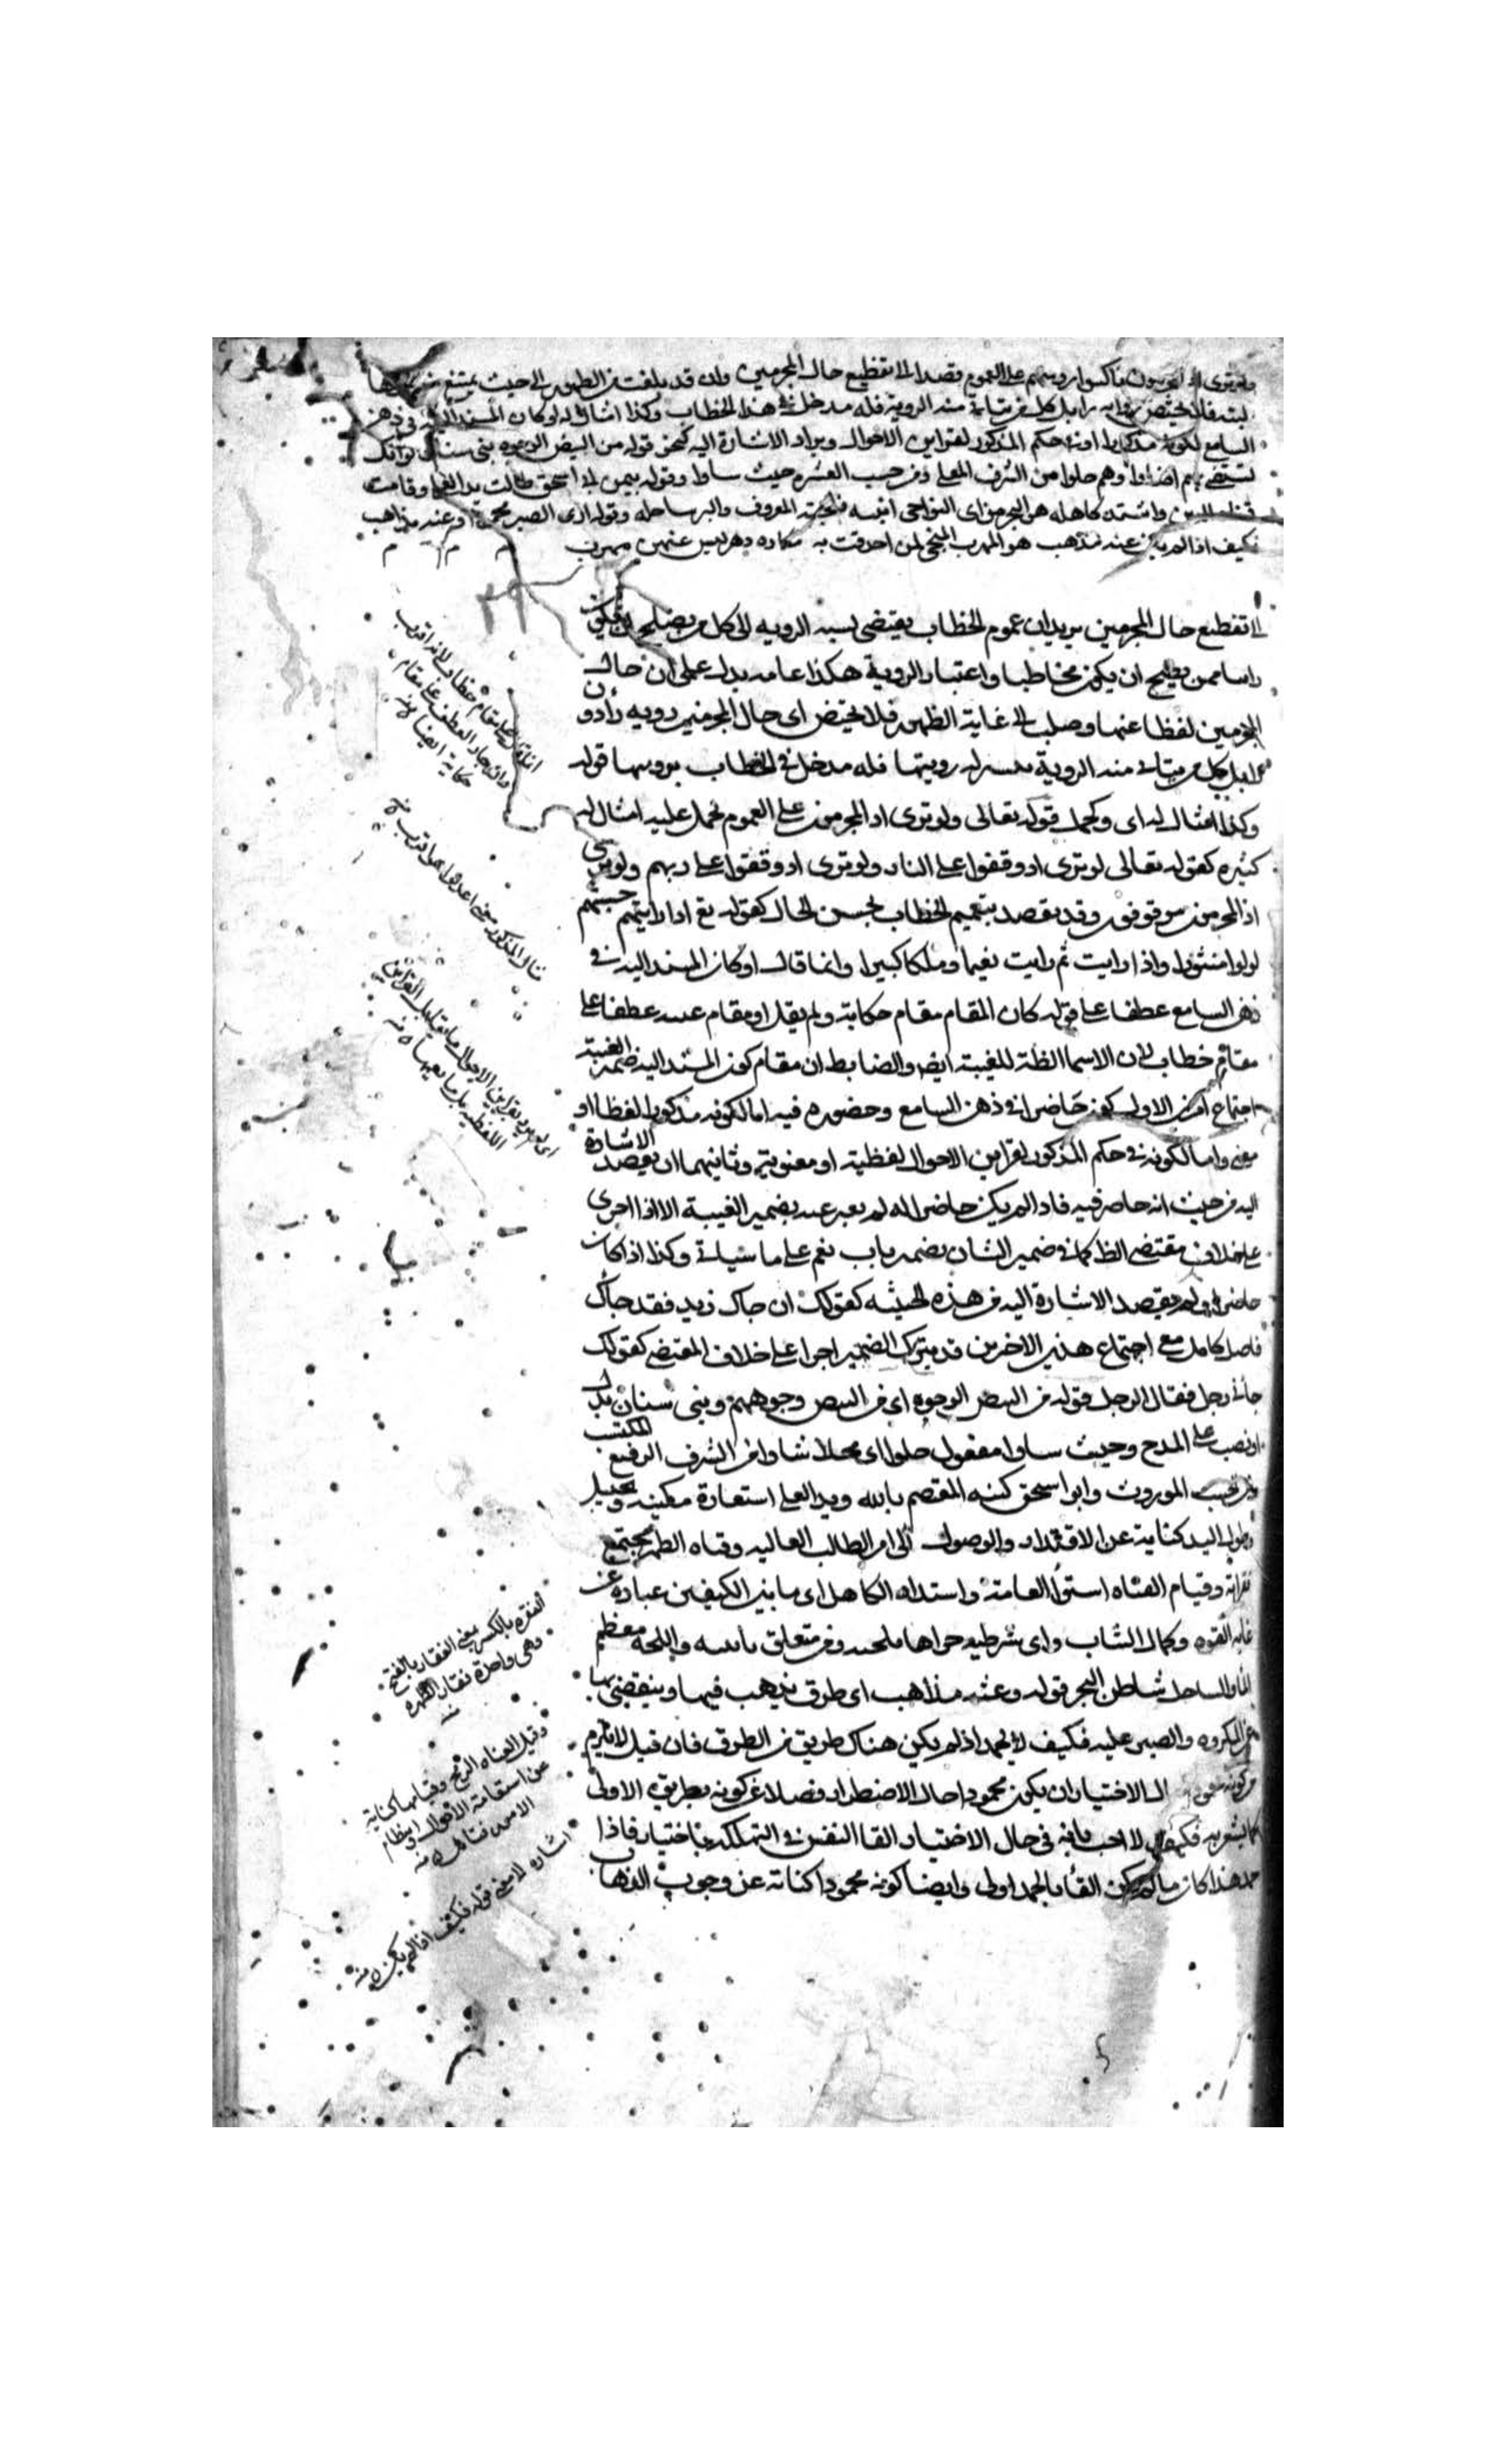 ولو ترى اذ المجرمون ناكسوا روسهم على العموم قصدا الى تفظيع حال المجرمين وان قد بلغت من الظهور الى حيث يمتنع
فلا يختص براء بل كل من يتاتى منه الروية فله مدخل فى هذا الخطاب وكذا امثال له او كان المسند اليه فى ذهن
السامع لكونه مذكورا او فى حكم المذكور لقراين الاحوال ويراد الاشارة اليه كنحو قوله من البيض الوجوه بنى سنان لو انك
تستضئ بهم اضاوا وهم حلوا من الشرف المعلى ومن حسب العشيره حيث شاوا وقوله بيمن ابى اسحق طالت يد العلى وقامت
قناة الدين واشتد كاهله هو البحر من اى النواحى اتيته فلجته المعروف والبر ساحله وقوله ارى الصبر محمودا وعنه مذاهب
فكيف اذا لم يكن عنه مذهب هو المهرب المنجى لمن احدقت به مكاره دهر ليس عنهن مهرب
الى تفظيع حال المجرمين يريد ان عموم الخطاب يقتضى نسبه الرويه الى كل من يصلح ان يكون
راسا ممن يصلح ان يكون مخاطبا واعتبار الروية هكذا عامه يدل على ان حال
المجرمين لفظاعتها وصلت الى غاية الظهور فلا يختص اى حال المجرمين رويه راء دون
راء بل كل من يتاتى منه الروية تيسر له رويتها فله مدخل فى الخطاب برويتها قوله
وكذا امثال له اى وكحمل قوله تعالى ولو ترى اذ المجرمون على العموم نحمل عليه امثال له
كثيره كقوله تعالى لو ترى اذ وقفوا على النار ولو ترى اذ وقفوا على ربهم ولو ترى
اذ المجرمون موقوفون وقد يقصد بتعميم الخطاب لحسن الحال كقوله تع اذا رايتهم حسبتهم
لولوا منثورا واذا رايت ثم رايت نعيما وملكا كبيرا وانما قال او كان المسند اليه فى
ذهن السامع عطفا على قوله كان المقام مقام حكاية ولم يقل او مقام غيبه عطفا على
مقام خطاب لان الاسما الظة للغيبة ايض والضابط ان مقام كون المسند اليه ضمير الغيبة
اجتماع امرين الاول كونه حاضرا فى ذهن السامع وحضوره فيه اما لكونه مذكورا لفظا او
معنى واما لكونه فى حكم المذكور لقراين الاحوال لفظية او معنوية وثانيهما ان يقصد الاشارة
اليه من حيث انه حاضر فيه فاذا لم يكن حاضرا له لم يعبر عنه بضمير الغيبة الا اذا اجرى
على خلاف مقتضى الظ كما فى ضمير الشان وضمير باب نعم على ما سياتى وكذا اذا كان
حاضرا ولم يقصد الاشارة اليه من هذه الحيثيه كقولك ان جاك زيد فقد جاك
فاضل كامل مع اجتماع هذين الاخرين قد يترك الضمير اجرا على خلاف المقتضى كقولك
جانى رجل فقال الرجل قوله من البيض الوجوه اى من البيض وجوههم وبنى سنان بدل
او نصب على المدح وحيث شاوا مفعول حلوا اى محلا شاوا من الشرف الرفيع المكتسب
ومن حسب الموروث وابو اسحق كنية المعتصم بالله ويد العلى استعارة مكنية وتخييل
وطول اليد كناية عن الاقتدار والوصول الى امر الطالب العاليه وقناه الظهر مجتمع
فقراته وقيام القناه استوا القامة واشتداد الكاهل اى ما بين الكتفين عباره عن
غايه القوه وكمال الشاب واى شرطيه جزاها فلجته ومن متعلق باتيته واللجه معظم
الما والساحل شاطئ البحر قوله وعنه مذاهب اى طرق يذهب فيها وينقضى بها
عن المكروه والصبر عليه فكيف لا يحمد اذا لم يكن هناك طريق من الطرق فان قيل لا يلزم
من كونه محمودا حال الاختيار ان يكون محمودا حال الاضطرار فضلا عن كونه بطريق الاولى
كما يشعر به فكيف لا اجيب بانه فى حال الاختيار القا النفس فى التهلكه باختيار فاذا
حمد هذا كان ما لم يكن القا بالحمد اولى وايضا كونه محمودا كناية عن وجوب
الفقره بالكسر بمعنى الفقار بالفتح
وهى واحدة فقار الظهره
منه
وقيل القناه الرمح وقيامها كناية
عن استقامة الاحوال وانتظام
الامور فتامل منه
اشارة الى معنى قوله فكيف اذا لم يكن منه